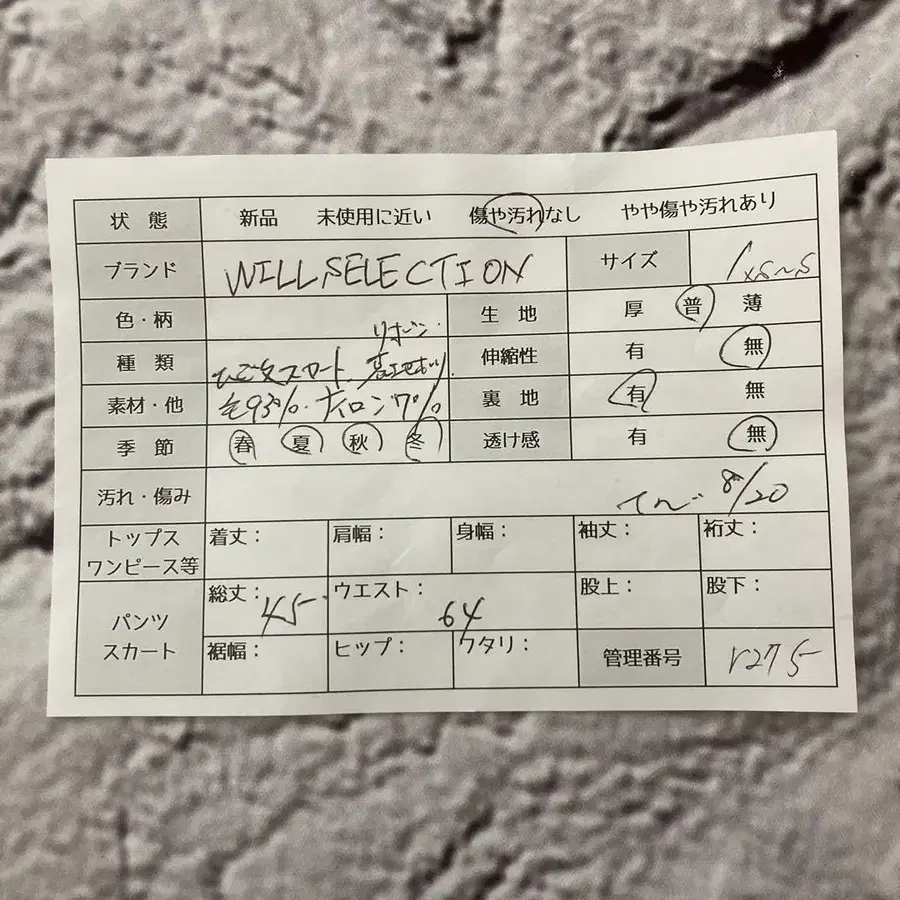 状態 新品 未使用に近い 傷や汚れなし やや傷や汚れあり
ブランド WILLSELECTION サイズ 1 xs~s
色・柄 生地 厚 普 薄
リボン
種類 スカート 伸縮性 有 無
素材・他 毛93%.ナイロン7% 裏地 有 無
季節 春 夏 秋 冬 透け感 有 無
汚れ・傷み 8/20
トップス
ワンピース等 着丈: 肩幅: 身幅: 袖丈: 裄丈:
パンツ
スカート 総丈: 45 ウエスト: 64 股上: 股下:
裾幅: ヒップ: ワタリ: 管理番号 r275